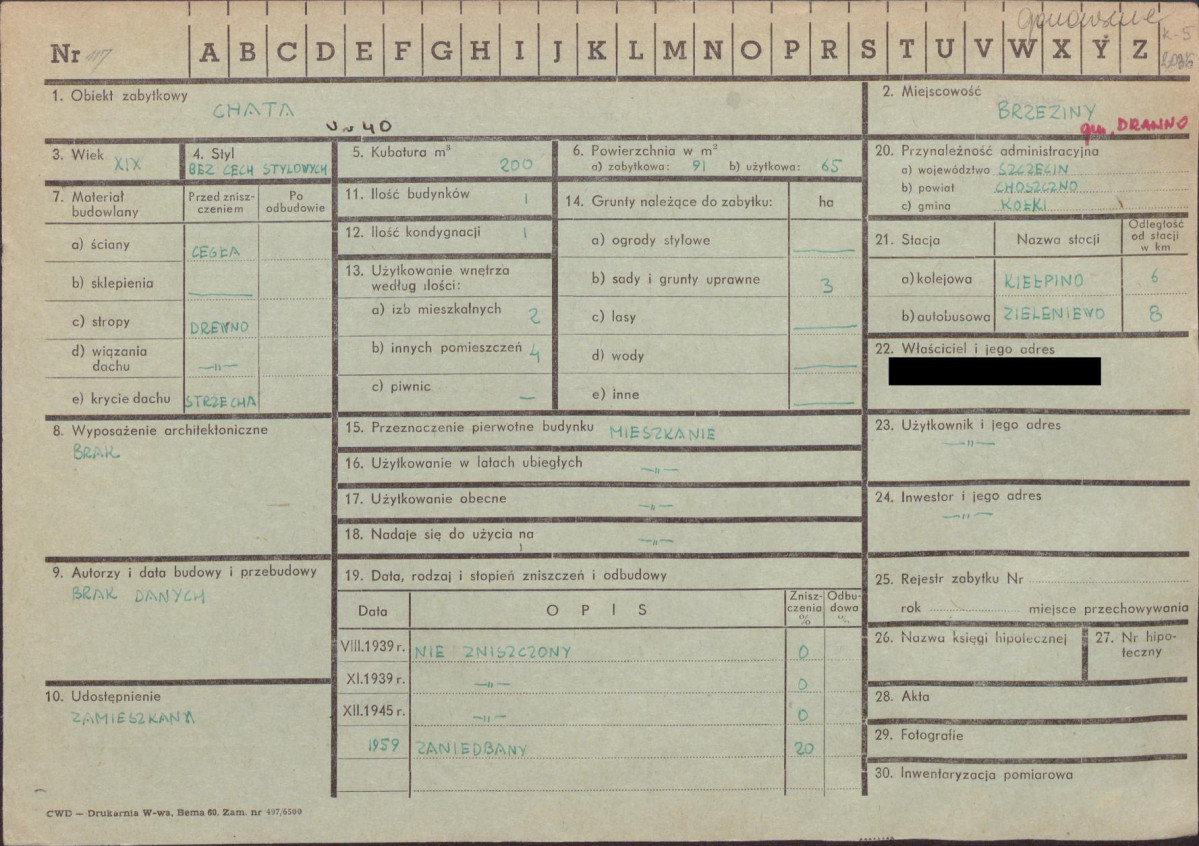 Nr 117 A B C D E F G H I J K L M N O P R S T U V W X Y Ż Z K-5
1. Obiekt zabytkowy
CHATA
nr 40
2. Miejscowość
BRZEZINY
gm. DRAWNO
3. Wiek XIX
4. Styl
BEZ CECH STYLOWYCH
5. Kubatura m³
200
6. Powierzchnia w m²
a) zabytkowa: 91 b) użytkowa: 65
7. Materiał budowlany
Przed zniszczeniem
Po odbudowie
a) ściany CEGŁA
b) sklepienia —
c) stropy DREWNO
d) wiązania dachu —"—
e) krycie dachu STRZECHA
8. Wyposażenie architektoniczne
BRAK
9. Autorzy i data budowy i przebudowy
BRAK DANYCH
10. Udostępnienie
ZAMIESZKANA
CWD — Drukarnia W-wa, Bema 60. Zam. nr 497/6500
11. Ilość budynków 1
12. Ilość kondygnacji 1
13. Użytkowanie wnętrza
według ilości:
a) izb mieszkalnych 2
b) innych pomieszczeń 4
c) piwnic —
14. Grunty należące do zabytku: ha
a) ogrody stylowe —
b) sady i grunty uprawne 3
c) lasy —
d) wody —
e) inne —
15. Przeznaczenie pierwotne budynku MIESZKANIE
16. Użytkowanie w latach ubiegłych —"—
17. Użytkowanie obecne —"—
18. Nadaje się do użycia na —"—
19. Data, rodzaj i stopień zniszczeń i odbudowy
Data OPIS Zniszczenia % Odbudowa %
VIII.1939 r. NIE ZNISZCZONY 0
XI.1939 r. —"— 0
XII.1945 r. —"— 0
1959 ZANIEDBANY 20
20. Przynależność administracyjna
a) województwo SZCZECIN
b) powiat CHOSZCZNO
c) gmina KOŁKI
21. Stacja Nazwa stacji Odległość od stacji w km
a) kolejowa KIEŁPINO 6
b) autobusowa ZIELENIEWO 8
22. Właściciel i jego adres
23. Użytkownik i jego adres
—"—
24. Inwestor i jego adres
—"—
25. Rejestr zabytku Nr
rok miejsce przechowywania
26. Nazwa księgi hipotecznej
27. Nr hipoteczny
28. Akta
29. Fotografie
30. Inwentaryzacja pomiarowa